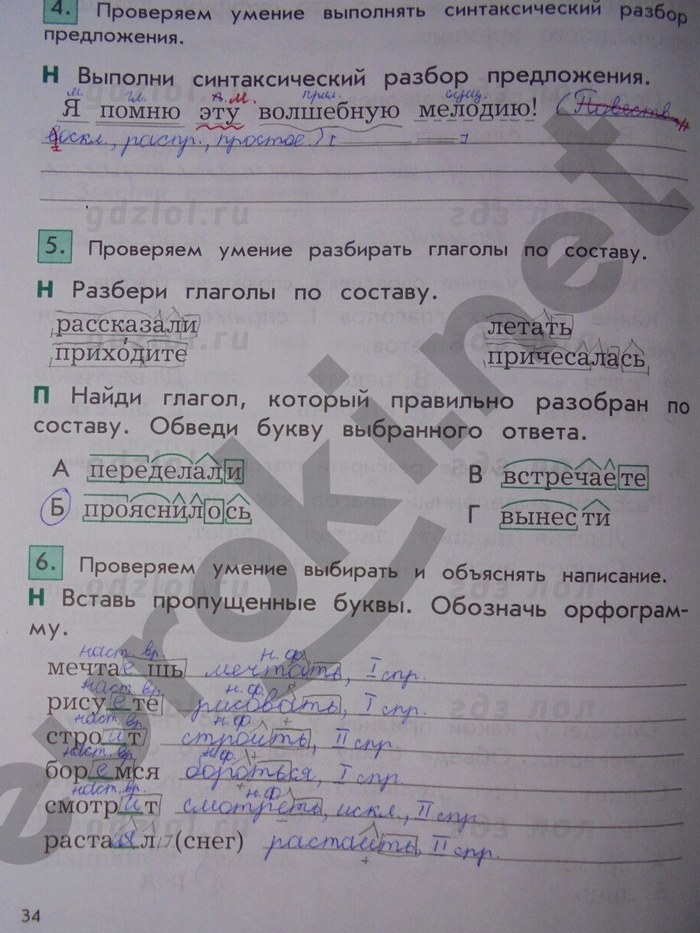 4. Проверяем умение выполнять синтаксический разбор
предложения.
Н Выполни синтаксический разбор предложения.
м. гл. м. прил. сущ.
Я помню эту волшебную мелодию! (Повеств.,
воскл., распр., простое)
5. Проверяем умение разбирать глаголы по составу.
Н Разбери глаголы по составу.
рассказали летать
приходите причесалась
П Найди глагол, который правильно разобран по
составу. Обведи букву выбранного ответа.
А переделали В встречаете
Б прояснилось Г вынести
6. Проверяем умение выбирать и объяснять написание.
Н Вставь пропущенные буквы. Обозначь орфограм-
му.
наст. вр. н. ф.
мечтаешь мечтать, I спр.
наст. вр. н. ф.
рисуете рисовать, I спр.
наст. вр. н. ф.
строит строить, II спр.
наст. вр. н. ф.
боремся бороться, I спр.
наст. вр. н. ф.
смотрит смотреть, искл., II спр.
растаял (снег) растаить, II спр.
34
gdzlol.ru
euroki.net